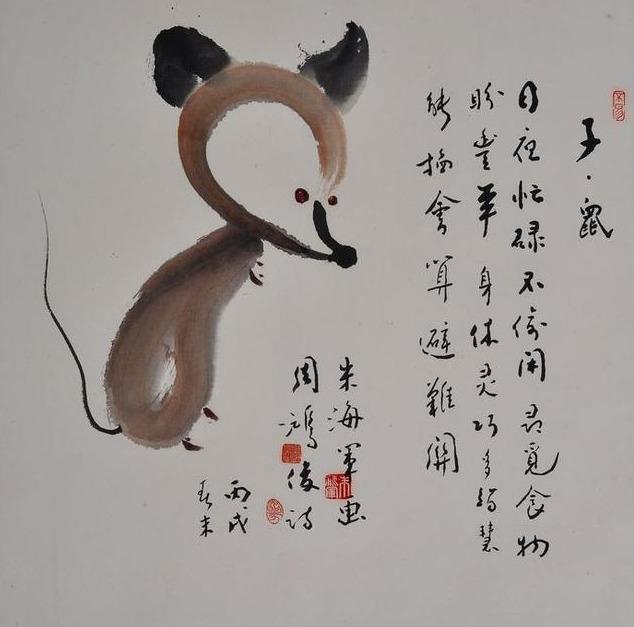 子·鼠
日夜忙碌不偷闲寻觅食物
盼豐年身体灵巧多智慧
能掐會算避難關
朱海軍画
周鸿俊诗
丙戌
春末